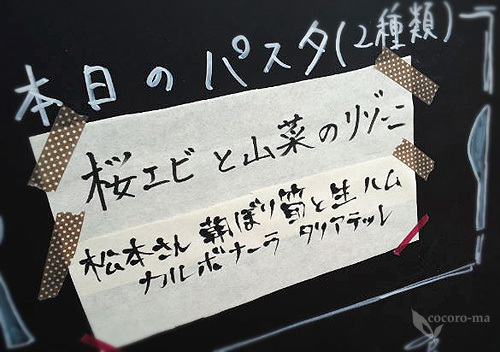 本日のパスタ(2種類)
桜エビと山菜のリゾーニ
松本さん 朝ぼり筍と生ハム
カルボナーラ タリアテッレ
cocoro-ma